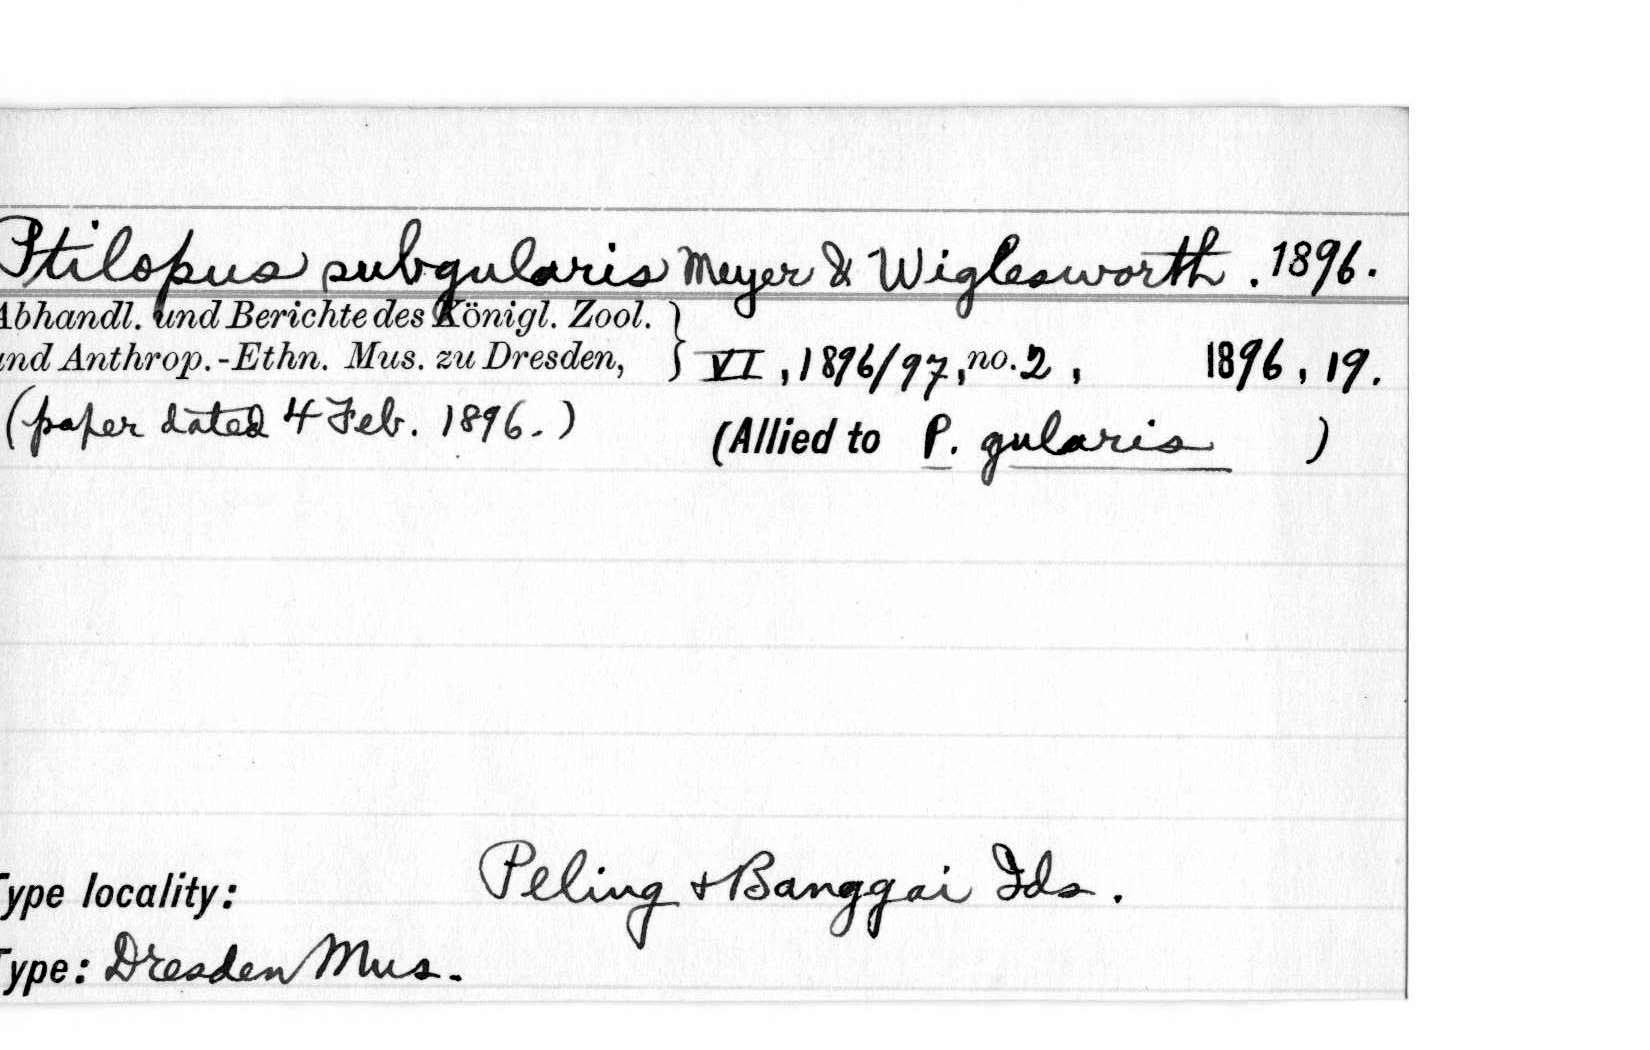 Ptilopus subgularis Meyer & Wiglesworth. 1896.
Abhandl. und Berichte des Königl. Zool.
und Anthrop.-Ethn. Mus. zu Dresden, } VI, 1896/97, no. 2, 1896, 19.
(paper dated 4 Feb. 1896.)
(Allied to P. gularis )
Type locality: Peling & Banggai Ids.
Type: Dresden Mus.